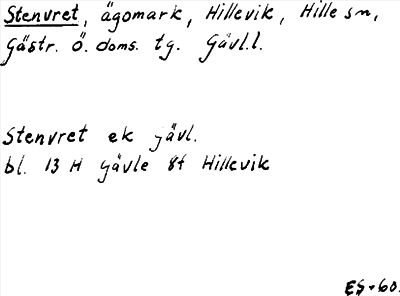 Stenvret, ägomark, Hillevik, Hille sn,
Gästr. Ö. doms. tg. Gävl.l.
Stenvret ek gävl.
bl. 13 H Gävle 8f Hillevik
ES-60.